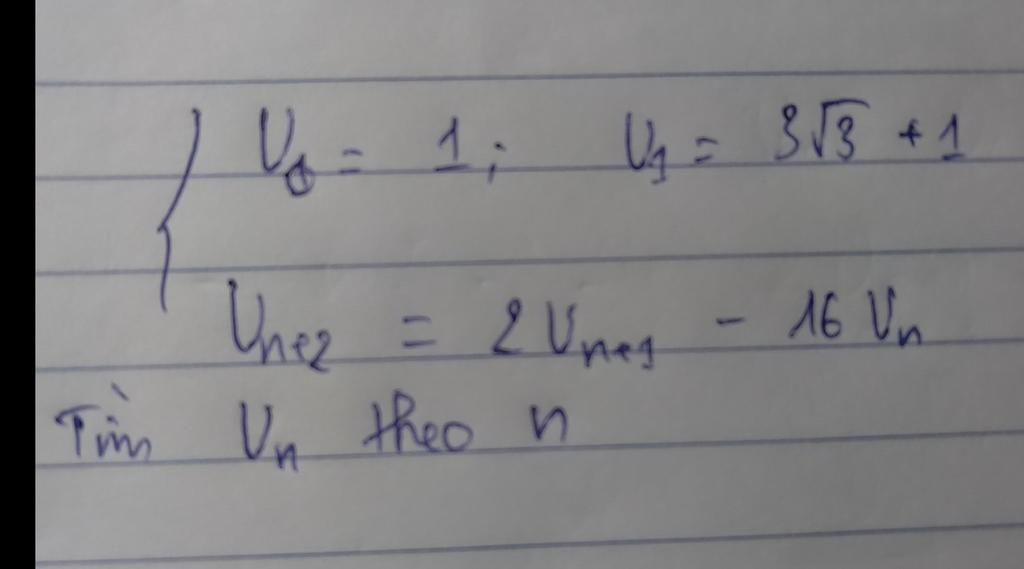 U₀ = 1; U₁ = 3√3 + 1
Uₙ₊₂ = 2Uₙ₊₁ - 16Uₙ
Tìm Uₙ theo n